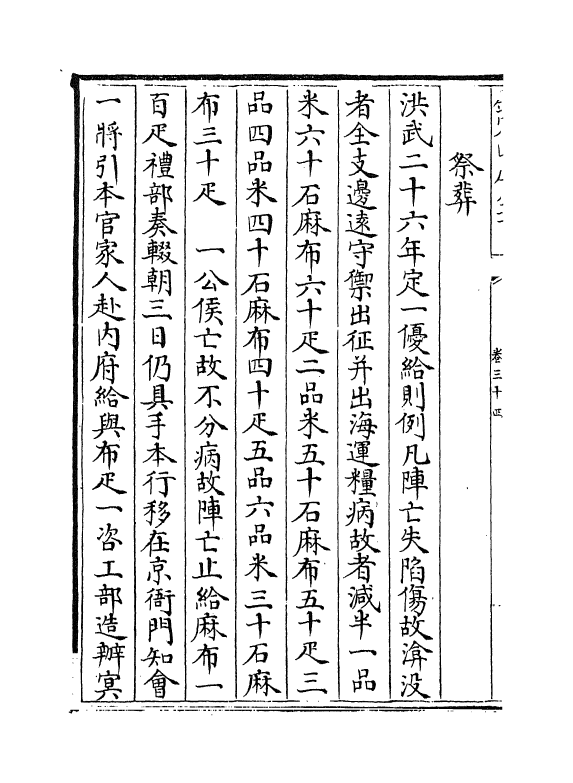 祭葬
洪武二十六年定一優給則例凡陣亡失陷傷故渰没
者全支邊遠守禦出征并出海運糧病故者減半一品
米六十石麻布六十疋二品米五十石麻布五十疋三
品四品米四十石麻布四十疋五品六品米三十石麻
布三十疋　一公侯亡故不分病故陣亡止給麻布一
百疋禮部奏輟朝三日仍具手本行移在京衙門知會
一將引本官家人赴内府給與布疋一咨工部造辦冥
卷三十四